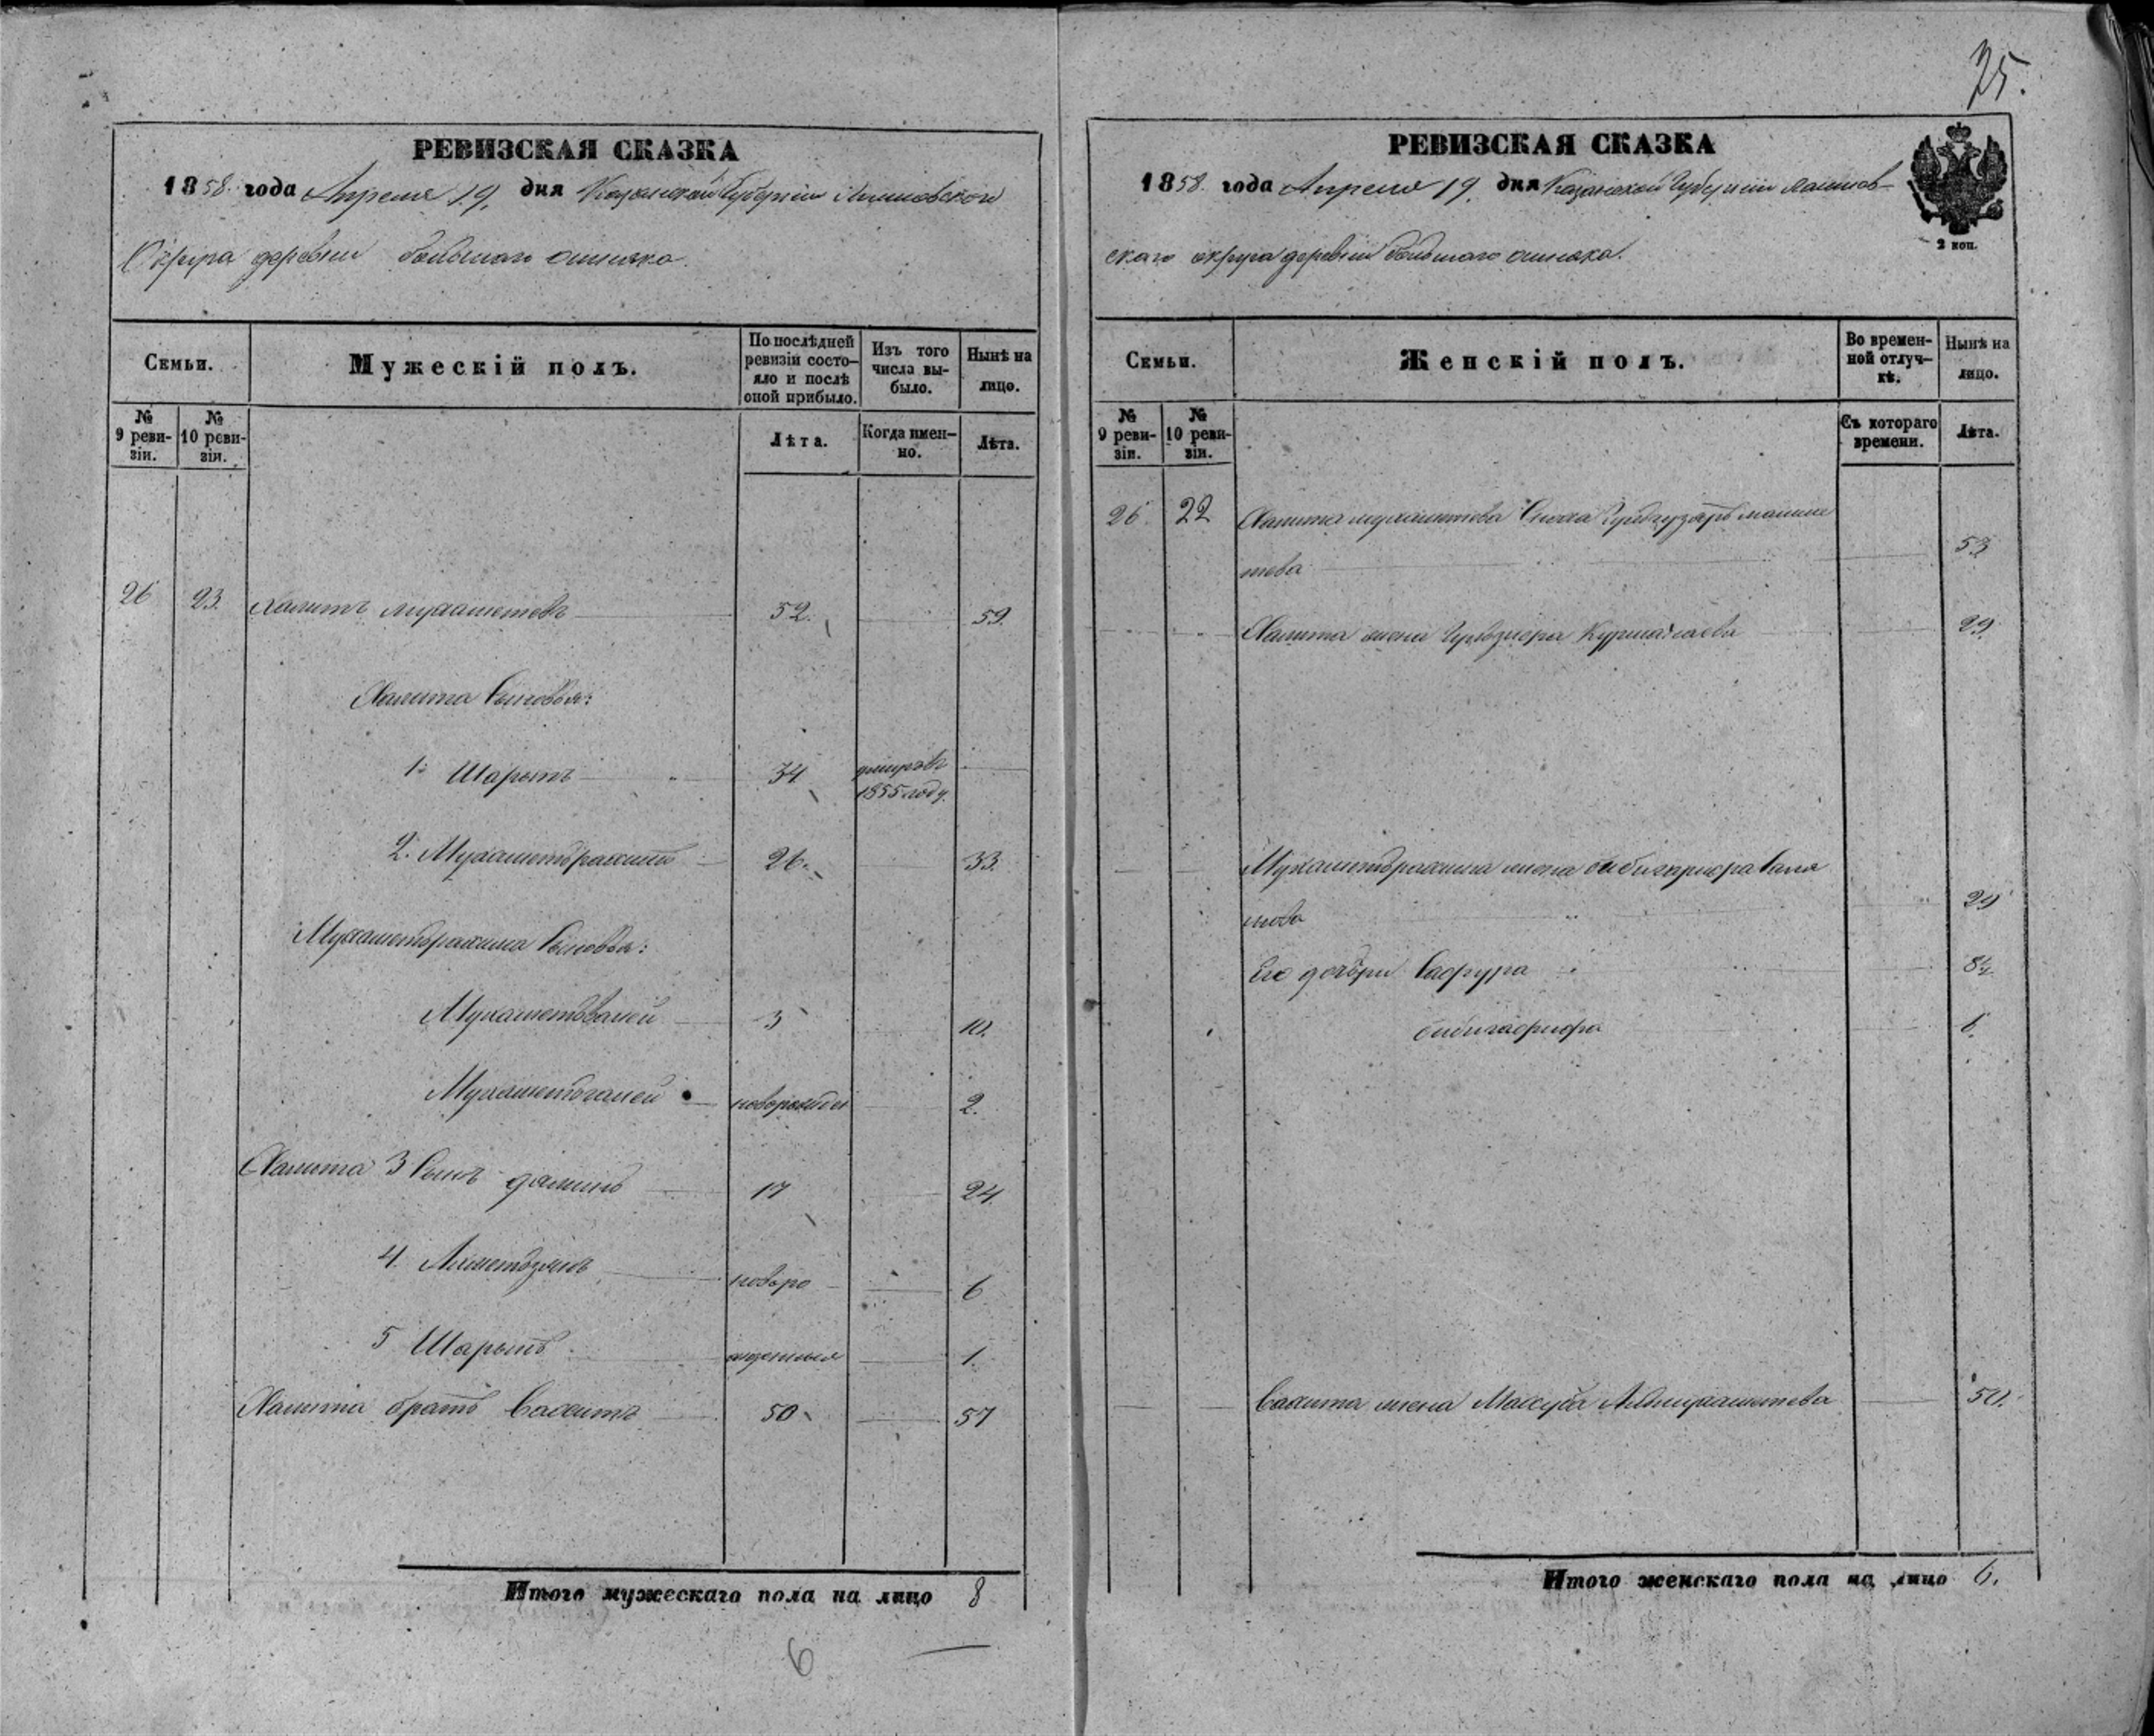 25.
РЕВИЗСКАЯ СКАЗКА
1858 года Апреля 19, дня Казанской Губернии
Округа деревни большаго ошняка.
Семьи.
Мужескій полъ.
По послѣдней ревизіи состо-
яло и послѣ
оной прибыло.
Изъ того
числа вы-
было.
Нынѣ на
лицо.
№
9 реви-
зіи.
№
10 реви-
зіи.
Лѣта.
Когда имен-
но.
Лѣта.
26 23. Халитъ мухаметевъ 52. 59.
Халита Сыновья:
1. Шарытъ 34 умеръ въ
1855 году.
2. Мухаметьрахимъ 26. 33.
Мухаметьрахима Сыновья:
Мухаметьвалей 3 10.
Мухаметьгалей новорожден 2.
Халита 3 Сынъ 17 24.
4. Ахметьзянъ новоро 6
5 Шарыпъ жденные 1.
Халита братъ Сахитъ 50 57
Итого мужескаго пола на лицо 8
6
РЕВИЗСКАЯ СКАЗКА
1858. года Апреля 19, дня Казанской Губернии лаишев-
скаго округа деревни большаго ошняка.
2 коп.
Семьи.
Женскій полъ.
Во времен-
ной отлуч-
кѣ.
Нынѣ на
лицо.
№
9 реви-
зіи.
№
10 реви-
зіи.
Съ котораго
времени.
Лѣта.
26. 22 Халита мухаметева
53
Халита жена 29
Мухаметьрахима жена
нова 29
Его дочери 8½
6.
Сахита жена 50.
Итого женскаго пола на лицо 6.